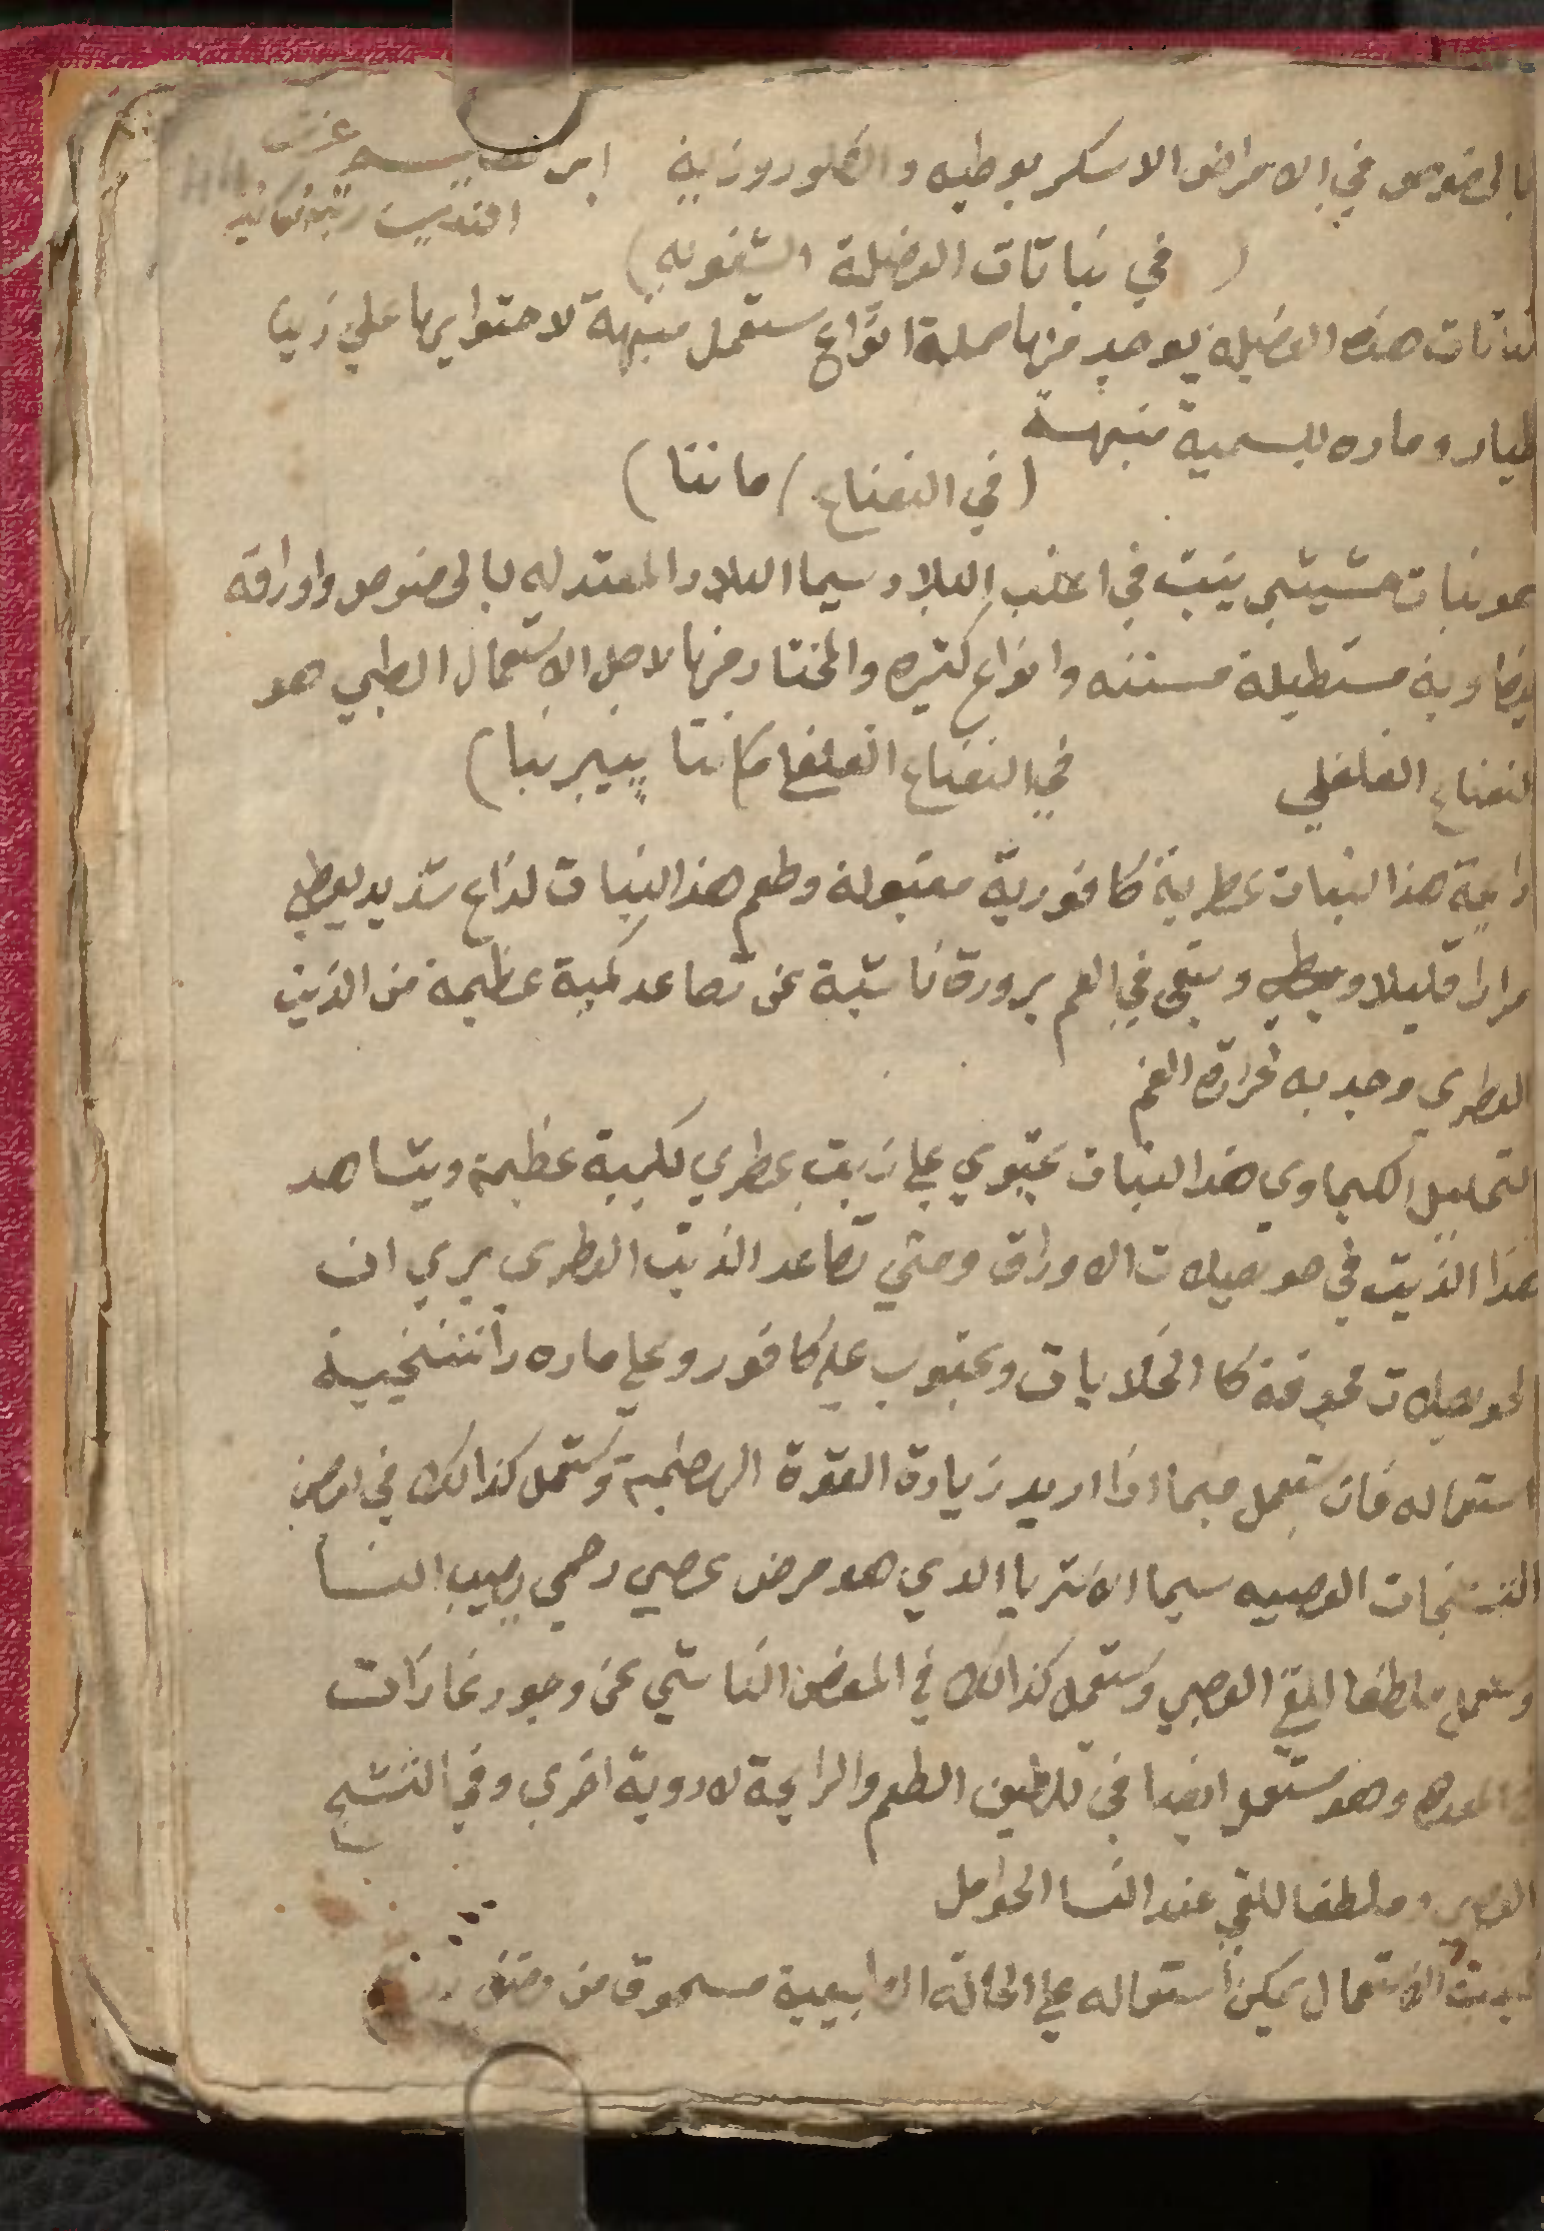 بالخصوص في الامراض الاسكربوطيه والخلوروزية
( في نباتات الفضيلة الشفويه )
نباتات هذه الفضيله يوجد منها جملة انواع ستعمل منبهة لاحتوايها علي زيتا
طيار وماده بلسمية منبهسة
( في النعناع / مانتا )
هو نبات حشيشي ينبت في اغلب البلاد وسيما البلاد المعتدله بالخصوص واوراقه
بيضاوية مستطيلة مسننه وانواع كتيره والمختار منها لاجل الاستعمال الطبي هو
النعناع الفلفلي
في النعناع الفلفلي مانتا بيبرتبا )
رايحة هذا النبات عطرية كافورية مقبولة وطعم هذا النبات لذاع شديد يعطي
مرارا قليلا ويبقي في الفم برودة ناشية عن تصاعد كمية عظيمة من الذيت
العطري وجد به حرارة الفم
التحليل الكيماوي هذا النبات يحتوي علي زيت عطري بكمية عظيمة ويشاهد
هذا الذيت في حويصلات الاوراق ومتي تصاعد الذيت العطري يري ان
الحويصلات مجوفة كا الخلايات ويحتوي علي كافور وعلي ماده راتنجية
استعماله فان ستعمل فيما اذا اريد زيادة القوة الهضمية وستعمل كذالك في بعض
التشنجات العصبيه سيما الاستريا الدي هو مرض عصبي رحمي يصيب النسا
وستعمل ملطفا للقئ العصبي وستعمل كذالك في المغص الناشي عن وجود غازات
المعده وهو ستعمل ايضا في تلطيف الطعم والرايحة لادوية اخري وفي التشنج
العصبي وملطفا للقي عند النسا الحوامل
كيفية الاستعمال يمكن استعماله علي الحالة الطابيعية مسحوق من